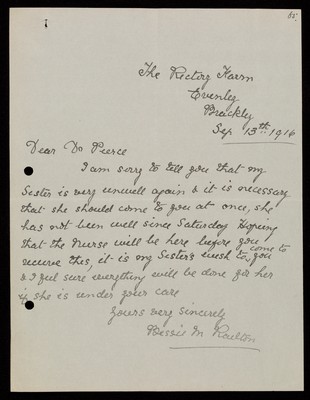 The Rectory Farm
Evenley
Brackley
Sep 13th 1916
Dear Dr Pierce
I am sorry to tell you that my
Sister is very unwell again & it is necessary
that she should come to you at once, she
has not been well since Saturday Hoping
that the Nurse will be here before you
receive this, it is my Sister's wish to come to you
& I feel sure everything will be done for her
if she is under your care
Yours very sincerely
Bessie M